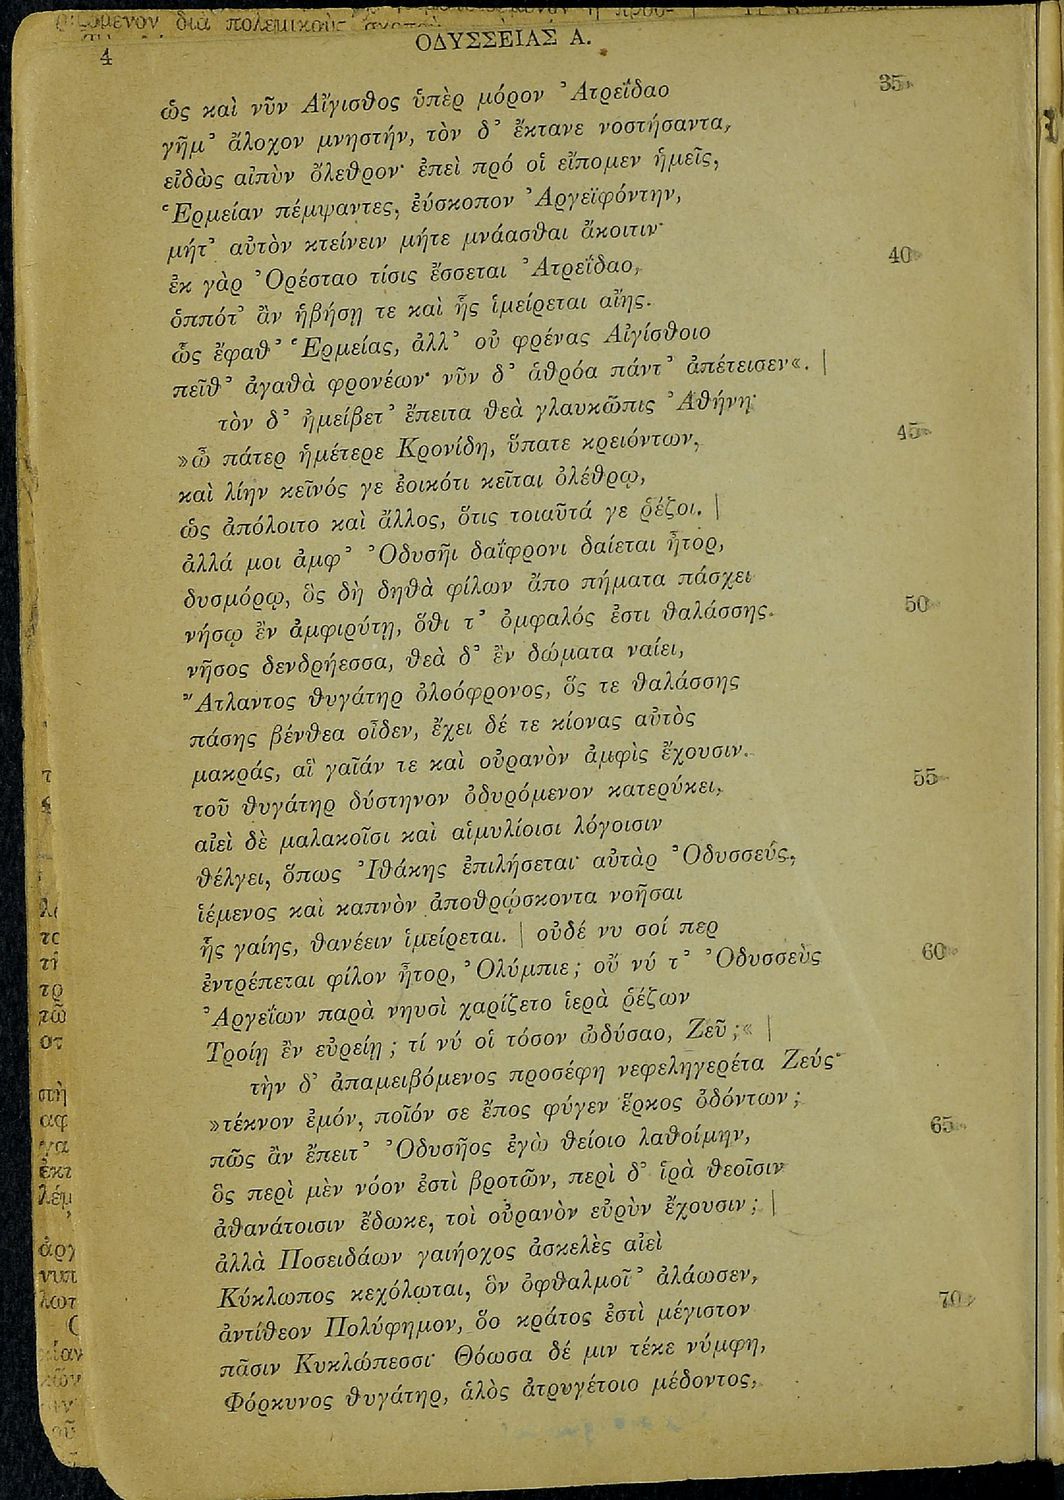 4
ΟΔΥΣΣΕΙΑΣ Α.
ὡς καὶ νῦν Αἴγισθος ὑπὲρ μόρον Ἀτρεΐδαο 35
γῆμ᾽ ἄλοχον μνηστήν, τὸν δ᾽ ἔκτανε νοστήσαντα,
εἰδὼς αἰπὺν ὄλεθρον· ἐπεὶ πρό οἱ εἴπομεν ἡμεῖς,
Ἑρμείαν πέμψαντες, ἐύσκοπον Ἀργεϊφόντην,
μήτ᾽ αὐτὸν κτείνειν μήτε μνάασθαι ἄκοιτιν·
ἐκ γὰρ Ὀρέσταο τίσις ἔσσεται Ἀτρεΐδαο, 40
ὁππότ᾽ ἂν ἡβήσῃ τε καὶ ἧς ἱμείρεται αἴης.
ὣς ἔφαθ᾽ Ἑρμείας, ἀλλ᾽ οὐ φρένας Αἰγίσθοιο
πεῖθ᾽ ἀγαθὰ φρονέων· νῦν δ᾽ ἁθρόα πάντ᾽ ἀπέτεισεν«. |
τὸν δ᾽ ἠμείβετ᾽ ἔπειτα θεὰ γλαυκῶπις Ἀθήνη·
»ὦ πάτερ ἡμέτερε Κρονίδη, ὕπατε κρειόντων, 45
καὶ λίην κεῖνός γε ἐοικότι κεῖται ὀλέθρῳ,
ὡς ἀπόλοιτο καὶ ἄλλος, ὅτις τοιαῦτά γε ῥέζοι. |
ἀλλά μοι ἀμφ᾽ Ὀδυσῆι δαΐφρονι δαίεται ἦτορ,
δυσμόρῳ, ὃς δὴ δηθὰ φίλων ἄπο πήματα πάσχει
νήσῳ ἒν ἀμφιρύτῃ, ὅθι τ᾽ ὀμφαλός ἐστι θαλάσσης. 50
νῆσος δενδρήεσσα, θεὰ δ᾽ ἒν δώματα ναίει,
Ἄτλαντος θυγάτηρ ὀλοόφρονος, ὅς τε θαλάσσης
πάσης βένθεα οἶδεν, ἔχει δέ τε κίονας αὐτὸς
μακράς, αἳ γαῖάν τε καὶ οὐρανὸν ἀμφὶς ἔχουσιν.
τοῦ θυγάτηρ δύστηνον ὀδυρόμενον κατερύκει, 55
αἰεὶ δὲ μαλακοῖσι καὶ αἱμυλίοισι λόγοισιν
θέλγει, ὅπως Ἰθάκης ἐπιλήσεται· αὐτὰρ Ὀδυσσεύς,
ἱέμενος καὶ καπνὸν ἀποθρῴσκοντα νοῆσαι
ἧς γαίης, θανέειν ἱμείρεται. | οὐδέ νυ σοί περ
ἐντρέπεται φίλον ἦτορ, Ὀλύμπιε; οὔ νύ τ᾽ Ὀδυσσεὺς 60
Ἀργεΐων παρὰ νηυσὶ χαρίζετο ἱερὰ ῥέζων
Τροίῃ ἒν εὐρείῃ; τί νύ οἱ τόσον ὠδύσαο, Ζεῦ;« |
τὴν δ᾽ ἀπαμειβόμενος προσέφη νεφεληγερέτα Ζεύς·
»τέκνον ἐμόν, ποῖόν σε ἔπος φύγεν ἕρκος ὀδόντων;
πῶς ἂν ἔπειτ᾽ Ὀδυσῆος ἐγὼ θείοιο λαθοίμην, 65
ὃς περὶ μὲν νόον ἐστὶ βροτῶν, περὶ δ᾽ ἱρὰ θεοῖσιν
ἀθανάτοισιν ἔδωκε, τοὶ οὐρανὸν εὐρὺν ἔχουσιν; |
ἀλλὰ Ποσειδάων γαιήοχος ἀσκελὲς αἰεὶ
Κύκλωπος κεχόλωται, ὃν ὀφθαλμοῖ᾽ ἀλάωσεν,
ἀντίθεον Πολύφημον, ὅο κράτος ἐστὶ μέγιστον 70
πᾶσιν Κυκλώπεσσι· Θόωσα δέ μιν τέκε νύμφη,
Φόρκυνος θυγάτηρ, ἁλὸς ἀτρυγέτοιο μέδοντος,